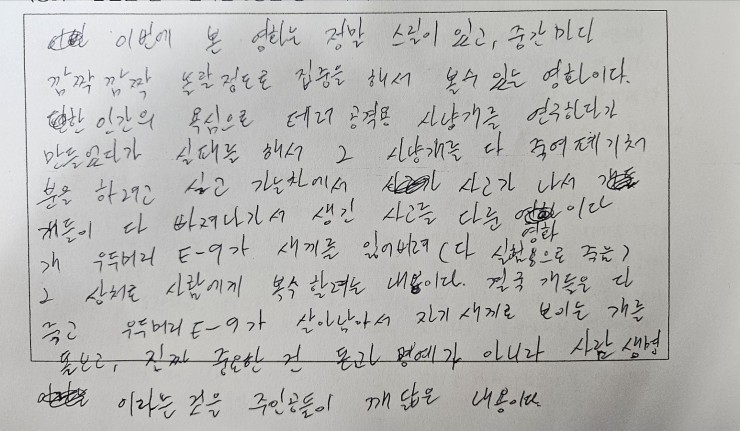 이번에 본 영화는 정말 스릴이 있고, 중간마다
깜짝 깜짝 놀랄정도로 집중을 해서 볼수 있는 영화이다.
인간의 욕심으로 테러 공격용 사냥개를 연구한다가
만들었다가 실패를 해서 그 사냥개를 다 죽여 폐기처
분을 하려고 싣고 가는차에서 사고가 나서
개들이 다 빠져나가서 생긴 사고를 다룬 영화이다
개 우두머리 E-9가 새끼를 잃어버려 (다 실험용으로 죽음)
그 상처로 사람에게 복수 할려는 내용이다. 결국 개들은 다
죽고 우두머리 E-9가 살아남아서 자기 새끼로 보이는 개를
돌보고, 진짜 중요한 건 돈과 명예가 아니라 사람 생명
이라는 것을 주인공들이 깨닫은 내용이다.